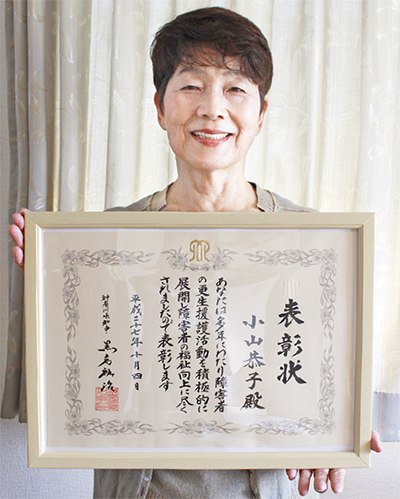 表彰状
小山恭子殿
あなたは多年にわたり障害者
の更生援護活動を積極的に
展開し障害者の福祉向上に尽く
されましたので表彰します
平成二十七年十月四日
神奈川県知事 黒岩祐治